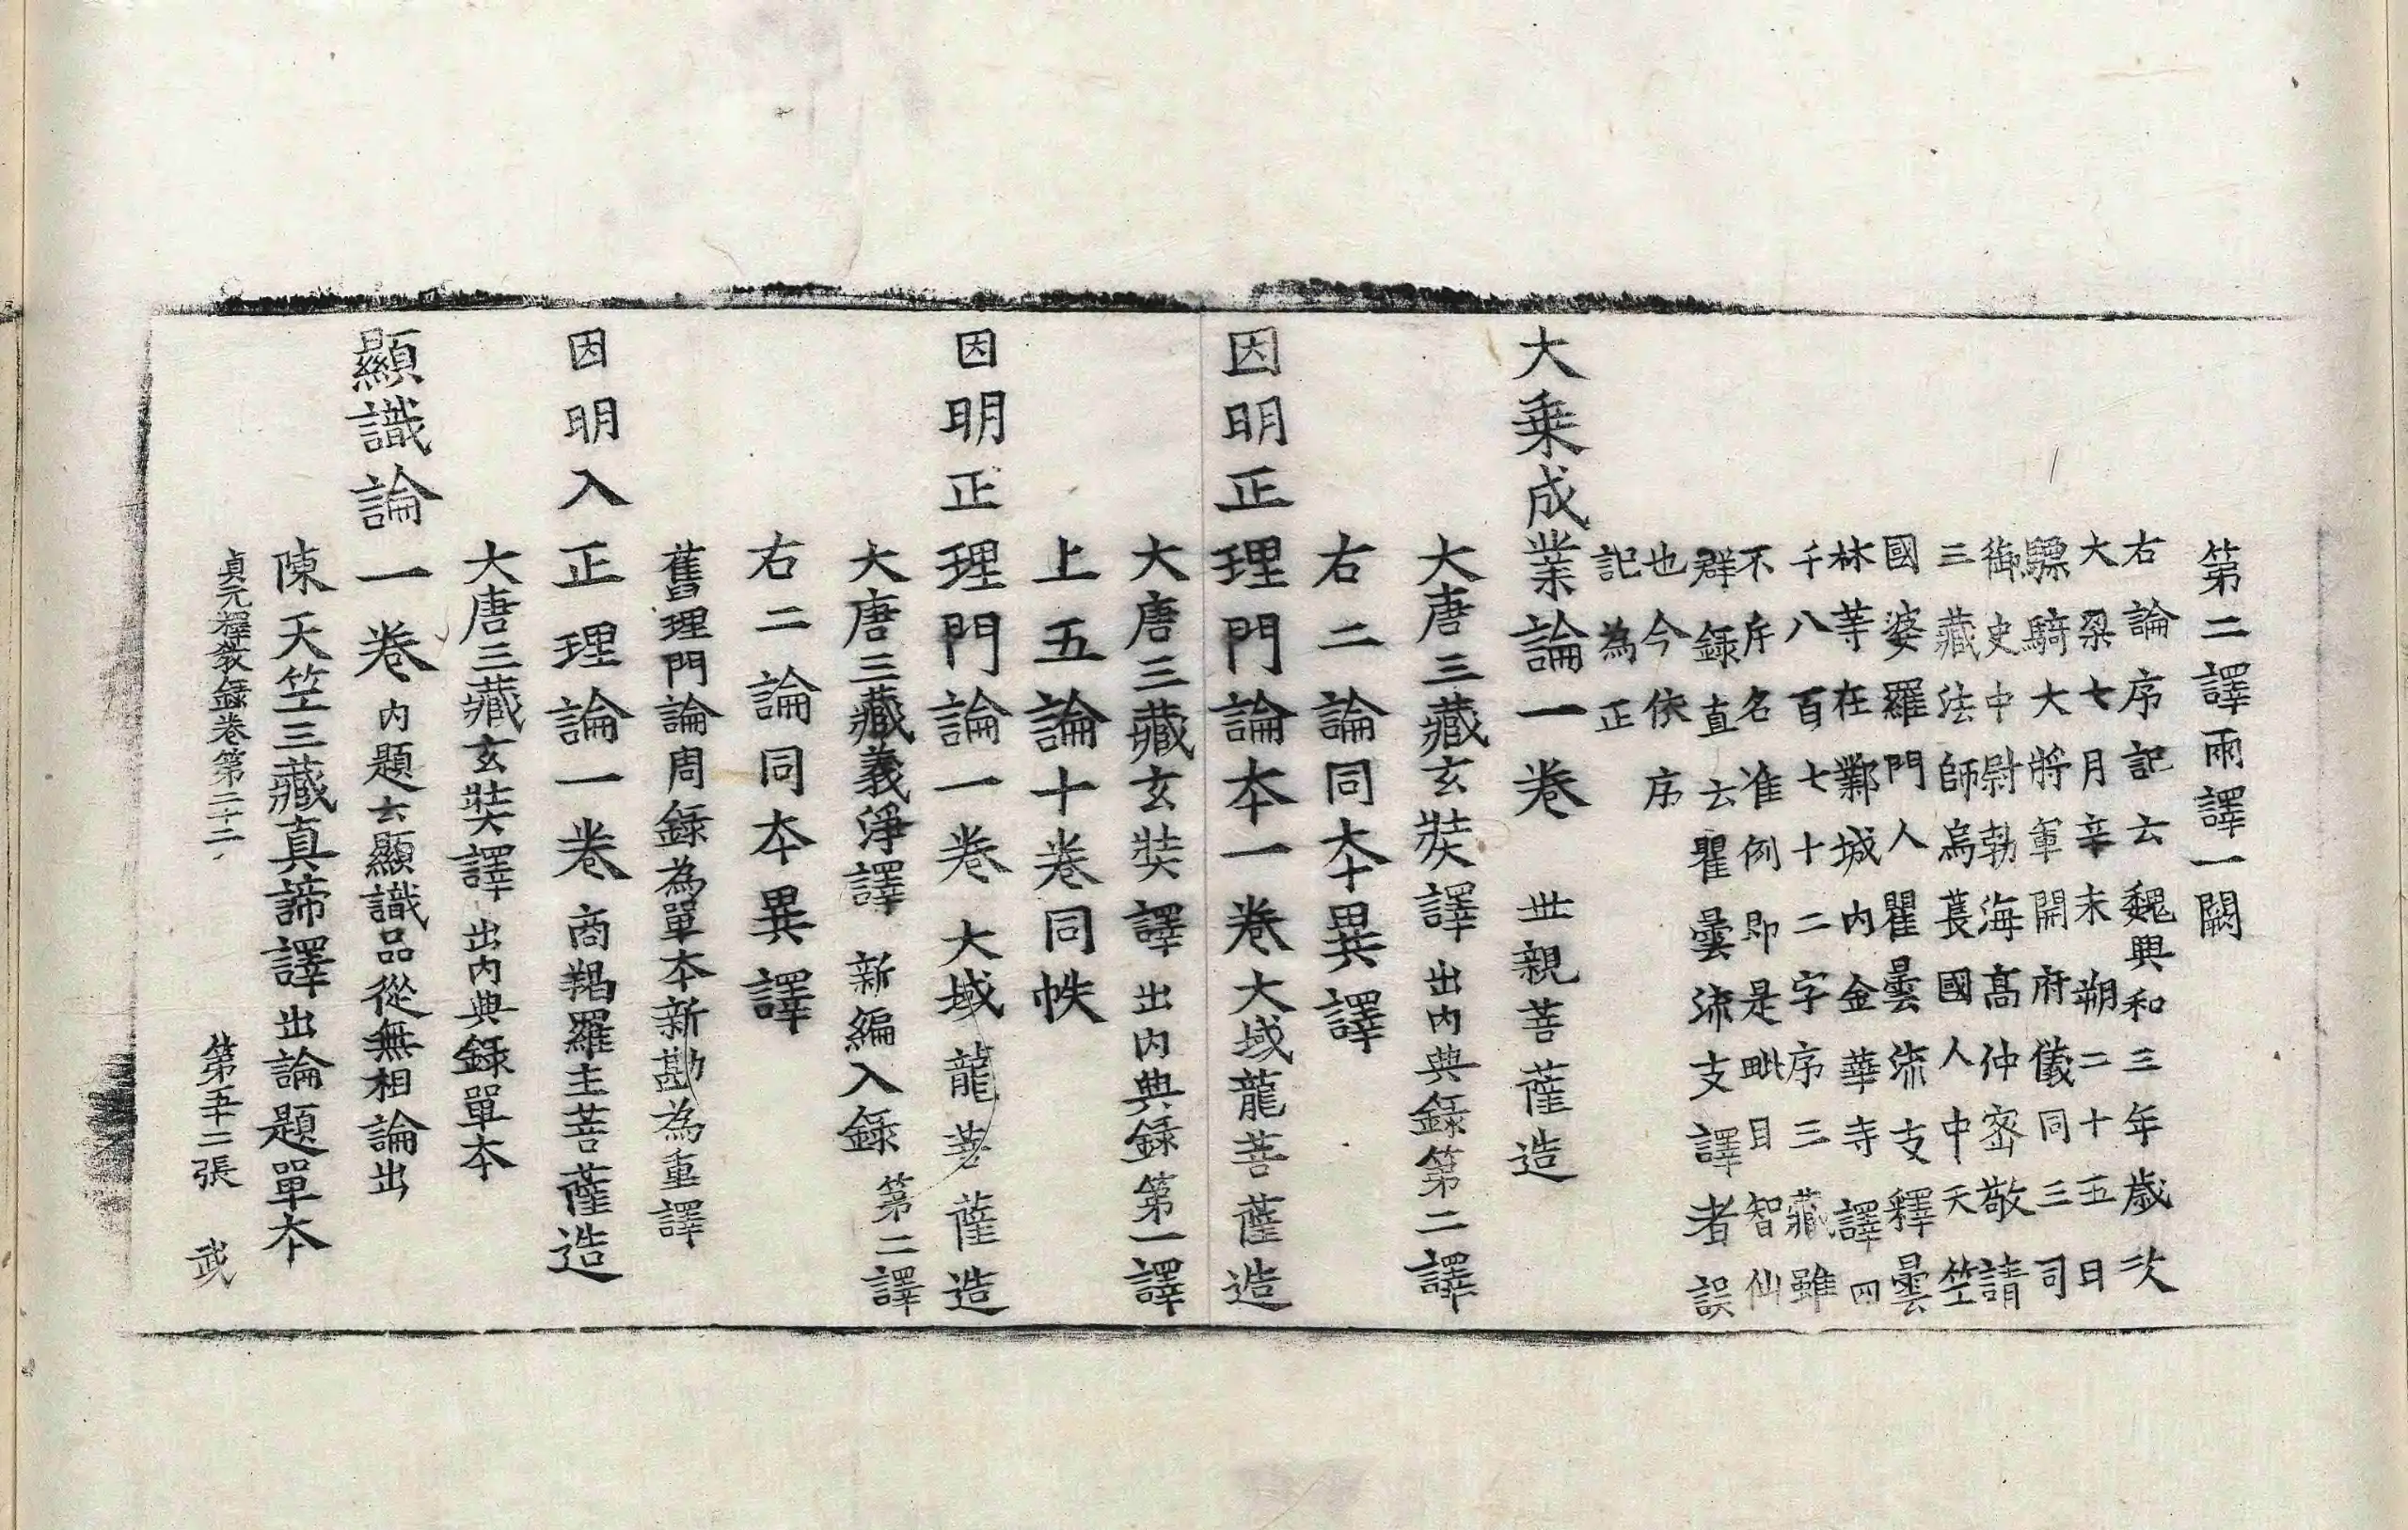 第二譯兩譯一闕
右論序記云魏興和三年歲次
大梁七月辛未朔二十五日
驃騎大將軍開府儀同三司
御史中尉勃海高仲密敬請
三藏法師烏萇國人中天竺
國婆羅門人瞿曇流支釋曇
林等在鄴城內金華寺譯四
千八百七十二字序三藏雖
不序名准例即是毗目智仙
群錄直云瞿曇流支譯者誤
也今依序
記為正
大乗成業論一卷 世親菩薩造
大唐三藏玄奘譯出內典錄第二譯
右二論同本異譯
因明正理門論本一卷大域龍菩薩造
大唐三藏玄奘譯出內典錄第一譯
上五論十卷同帙
因明正理門論一卷大域龍菩薩造
大唐三藏義淨譯新編入錄第二譯
右二論同本異譯
舊理門論周錄為單本新勘為重譯
因明入正理論一卷商羯羅主菩薩造
大唐三藏玄奘譯出內典錄單本
顯識論一卷內題云顯識品從無相論出
陳天竺三藏真諦譯出論題單本
貞元釋教錄卷第二十二 第五十二張 武